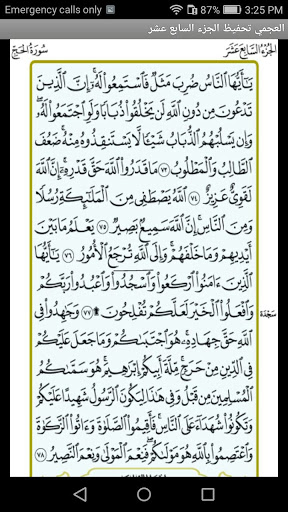 Emergency calls only 63% 3:25 PM
العجمي تحفيظ الجزء السابع عشر
الجزء السابع عشر سورة الحج
يَٰٓأَيُّهَا ٱلنَّاسُ ضُرِبَ مَثَلٌ فَٱسْتَمِعُوا۟ لَهُۥٓ ۚ إِنَّ ٱلَّذِينَ
تَدْعُونَ مِن دُونِ ٱللَّهِ لَن يَخْلُقُوا۟ ذُبَابًا وَلَوِ ٱجْتَمَعُوا۟ لَهُۥ ۖ
وَإِن يَسْلُبْهُمُ ٱلذُّبَابُ شَيْـًٔا لَّا يَسْتَنقِذُوهُ مِنْهُ ۚ ضَعُفَ
ٱلطَّالِبُ وَٱلْمَطْلُوبُ ٧٣ مَا قَدَرُوا۟ ٱللَّهَ حَقَّ قَدْرِهِۦٓ ۗ إِنَّ ٱللَّهَ
لَقَوِىٌّ عَزِيزٌ ٧٤ ٱللَّهُ يَصْطَفِى مِنَ ٱلْمَلَٰٓئِكَةِ رُسُلًا
وَمِنَ ٱلنَّاسِ ۚ إِنَّ ٱللَّهَ سَمِيعٌۢ بَصِيرٌ ٧٥ يَعْلَمُ مَا بَيْنَ
أَيْدِيهِمْ وَمَا خَلْفَهُمْ ۗ وَإِلَى ٱللَّهِ تُرْجَعُ ٱلْأُمُورُ ٧٦ يَٰٓأَيُّهَا
ٱلَّذِينَ ءَامَنُوا۟ ٱرْكَعُوا۟ وَٱسْجُدُوا۟ وَٱعْبُدُوا۟ رَبَّكُمْ
وَٱفْعَلُوا۟ ٱلْخَيْرَ لَعَلَّكُمْ تُفْلِحُونَ ۩ ٧٧ وَجَٰهِدُوا۟ فِى سجدة
ٱللَّهِ حَقَّ جِهَادِهِۦ ۚ هُوَ ٱجْتَبَىٰكُمْ وَمَا جَعَلَ عَلَيْكُمْ
فِى ٱلدِّينِ مِنْ حَرَجٍ ۚ مِّلَّةَ أَبِيكُمْ إِبْرَٰهِيمَ ۚ هُوَ سَمَّىٰكُمُ
ٱلْمُسْلِمِينَ مِن قَبْلُ وَفِى هَٰذَا لِيَكُونَ ٱلرَّسُولُ شَهِيدًا عَلَيْكُمْ
وَتَكُونُوا۟ شُهَدَآءَ عَلَى ٱلنَّاسِ ۚ فَأَقِيمُوا۟ ٱلصَّلَوٰةَ وَءَاتُوا۟ ٱلزَّكَوٰةَ
وَٱعْتَصِمُوا۟ بِٱللَّهِ هُوَ مَوْلَىٰكُمْ ۖ فَنِعْمَ ٱلْمَوْلَىٰ وَنِعْمَ ٱلنَّصِيرُ ٧٨